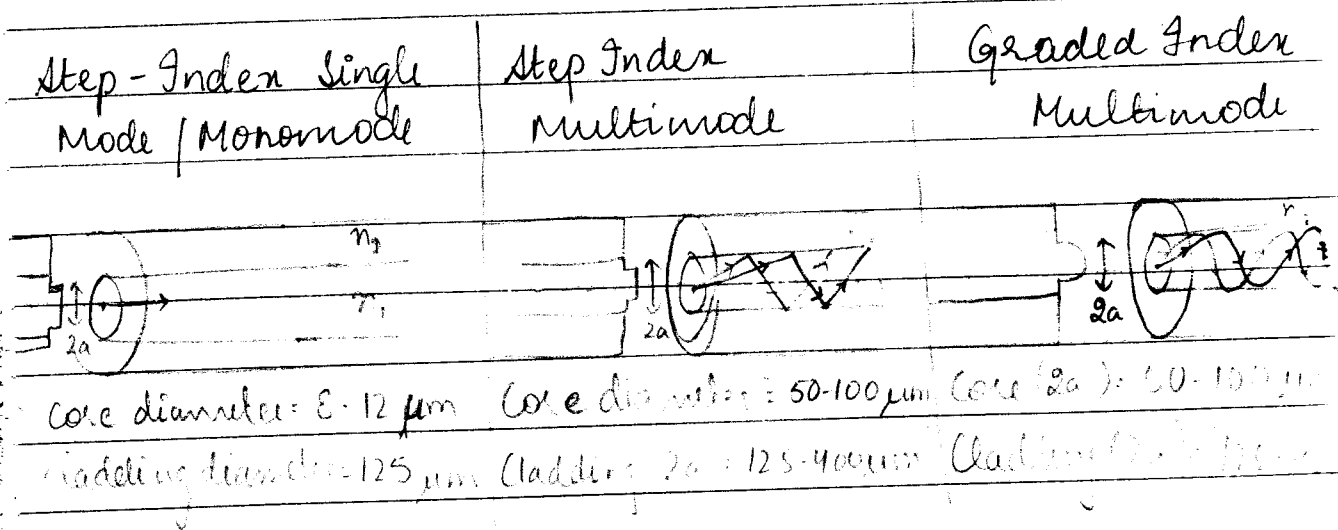 Step-Index Single
Mode / Monomode
Step Index
Multimode
Graded Index
Multimode
n₂
n₁
2a
2a
2a
Core diameter: 8-12 μm
Core diameter: 50-100 μm
Core (2a):
diameter 125 μm
Cladding 125-400 μm